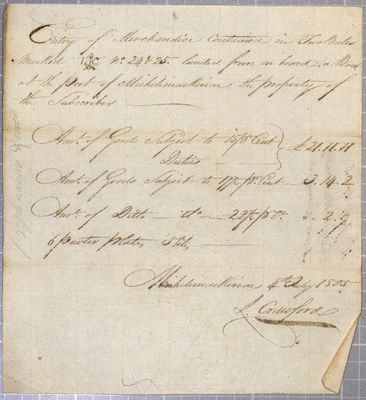 Entry of Merchandise Contained in Two Bales
Marked No. 24 & 25 landed from on board a Boat
at the port of Michilimackinac the property of
the Subscriber
Amt. of Goods Subject to 15 pr Cent
Duties £ 21.11.11
Amt. of Goods Subject to 17½ pr Cent 3.14.2
Amt. of Ditto do 22½ pr Ct. 2.9
6 pewter plates
Michilimackinac 4th July 1805
L. Crawford